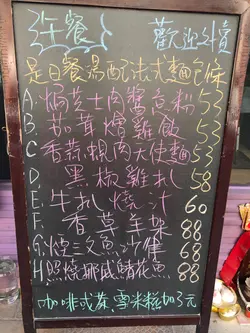 午餐
歡迎外賣
是日餐湯配法式麵包條
A. 焗芝士肉醬意粉 53
B. 茄茸燴雞飯 53
C. 香蒜蜆肉天使麵 53
D. 黑椒雞扒 58
E. 牛扒燒汁 60
F. 香草羊架 88
G. 煙三文魚沙律 68
H. 照燒挪威鯖花魚 88
咖啡或茶 雪米糍加3元